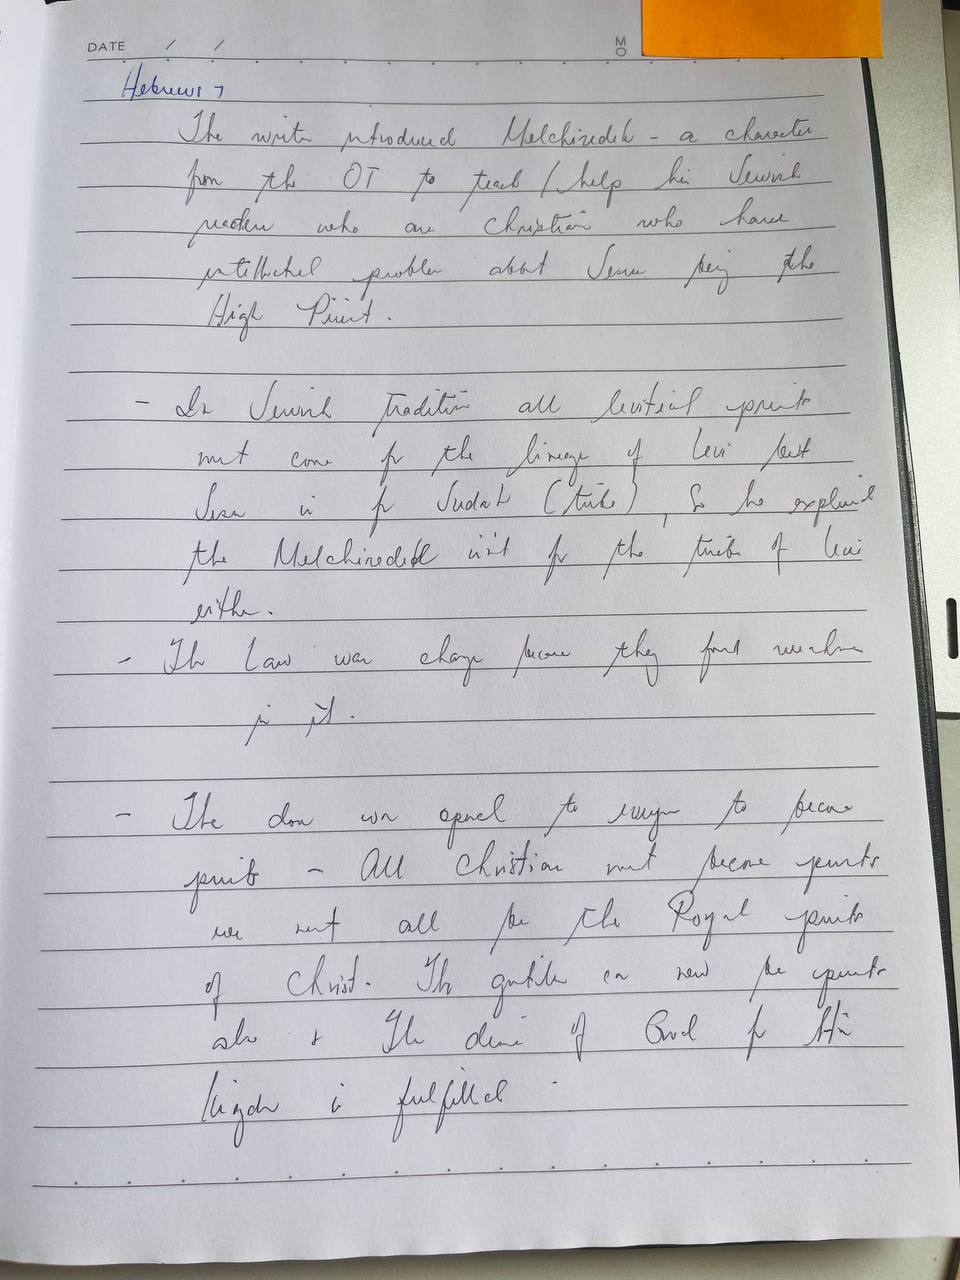 DATE / /
MO
Hebrews 7
The writer introduced Melchizedek - a character
from the OT to teach / help his Jewish
readers who are Christian who have
intellectual problem about Jesus being the
High Priest.
- In Jewish tradition all levitical priests
must come fr the lineage of Levi but
Jesus is fr Judah (tribe), So he explained
the Melchizedek isn't fr the tribe of Levi
either.
- The Law was change because they found weakness
in it.
- The door was opened to to become
priests - All Christian must become priests
we must all be the Royal priests
of Christ. The gentiles can now be priests
also & The desire of God for His
kingdom is fulfilled.